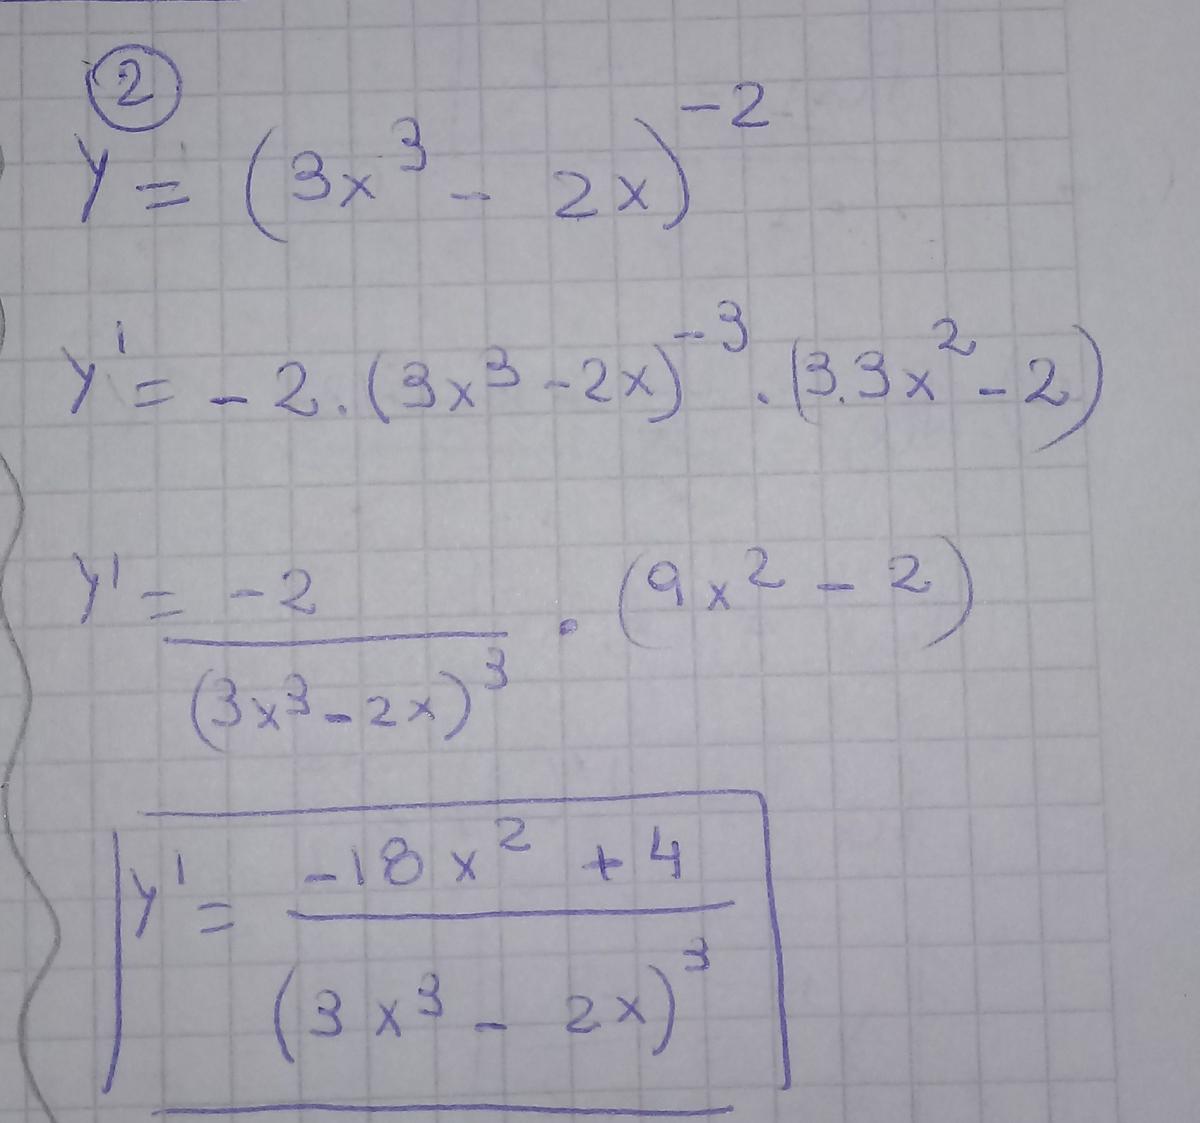 2
y = (3x³ - 2x)⁻²
y' = -2.(3x³-2x)⁻³.(3.3x²-2)
y' = -2/(3x³-2x)³ . (9x² - 2)
y' = (-18x² + 4)/(3x³ - 2x)³